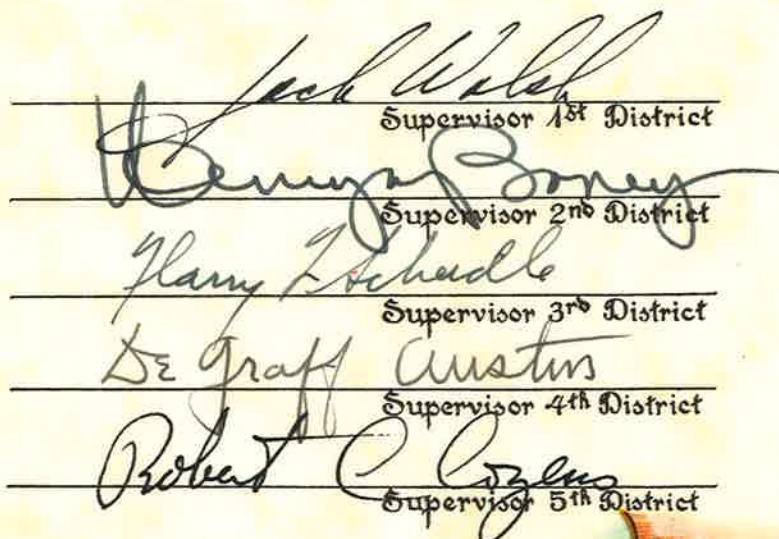 Jack Walsh
Supervisor 1st District
Henry A Boney
Supervisor 2nd District
Harry F Scheidle
Supervisor 3rd District
De Graff Austin
Supervisor 4th District
Robert C Cozens
Supervisor 5th District